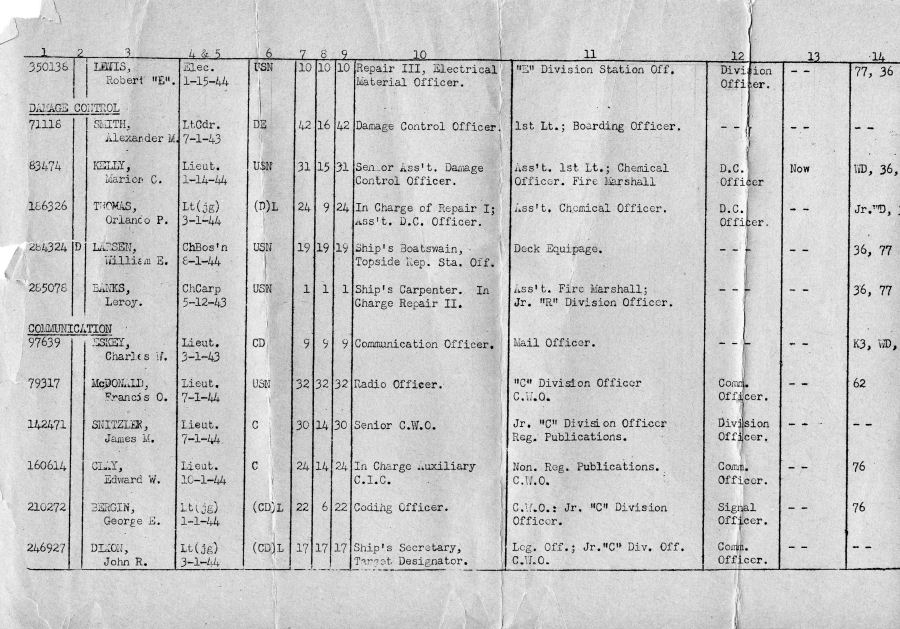 1 2 3 4 & 5 6 7 8 9 10 11 12 13 14
350136 LEWIS, Elec. USN 10 10 10 Repair III, Electrical "E" Division Station Off. Division -- 77, 36
Robert "E". 1-15-44 Material Officer. Officer.
DAMAGE CONTROL
71118 SMITH, LtCdr. DE 42 16 42 Damage Control Officer. 1st Lt.; Boarding Officer. --- -- --
Alexander M. 7-1-43
83474 KELLY, Lieut. USN 31 15 31 Senior Ass't. Damage Ass't. 1st Lt.; Chemical D.C. Now WD, 36,
Marion C. 1-14-44 Control Officer. Officer. Fire Marshall Officer
186326 THOMAS, Lt(jg) (D)L 24 9 24 In Charge of Repair I; Ass't. Chemical Officer. D.C. -- Jr."D,
Orlando P. 3-1-44 Ass't. D.C. Officer. Officer.
284324 D LARSEN, ChBos'n USN 19 19 19 Ship's Boatswain, Deck Equipage. --- -- 36, 77
William E. 8-1-44 Topside Rep. Sta. Off.
285078 BANKS, ChCarp USN 1 1 1 Ship's Carpenter. In Ass't. Fire Marshall; --- -- 36, 77
Leroy. 5-12-43 Charge Repair II. Jr. "R" Division Officer.
COMMUNICATION
97639 ESKEY, Lieut. CD 9 9 9 Communication Officer. Mail Officer. --- -- K3, WD,
Charles W. 3-1-43
79317 McDONALD, Lieut. USN 32 32 32 Radio Officer. "C" Division Officer Comm. -- 62
Francis O. 7-1-44 C.W.O. Officer.
142471 SNITZLER, Lieut. C 30 14 30 Senior C.W.O. Jr. "C" Division Officer Division -- --
James M. 7-1-44 Reg. Publications. Officer.
160614 CLAY, Lieut. C 24 14 24 In Charge Auxiliary Non. Reg. Publications. Comm. -- 76
Edward W. 10-1-44 C.I.C. C.W.O. Officer.
210272 BERGIN, Lt(jg) (CD)L 22 6 22 Coding Officer. C.W.O.: Jr. "C" Division Signal -- 76
George E. 1-1-44 Officer. Officer.
246927 DIXON, Lt(jg) (CD)L 17 17 17 Ship's Secretary, Leg. Off.; Jr."C" Div. Off. Comm. -- --
John R. 3-1-44 Target Designator. C.W.O. Officer.